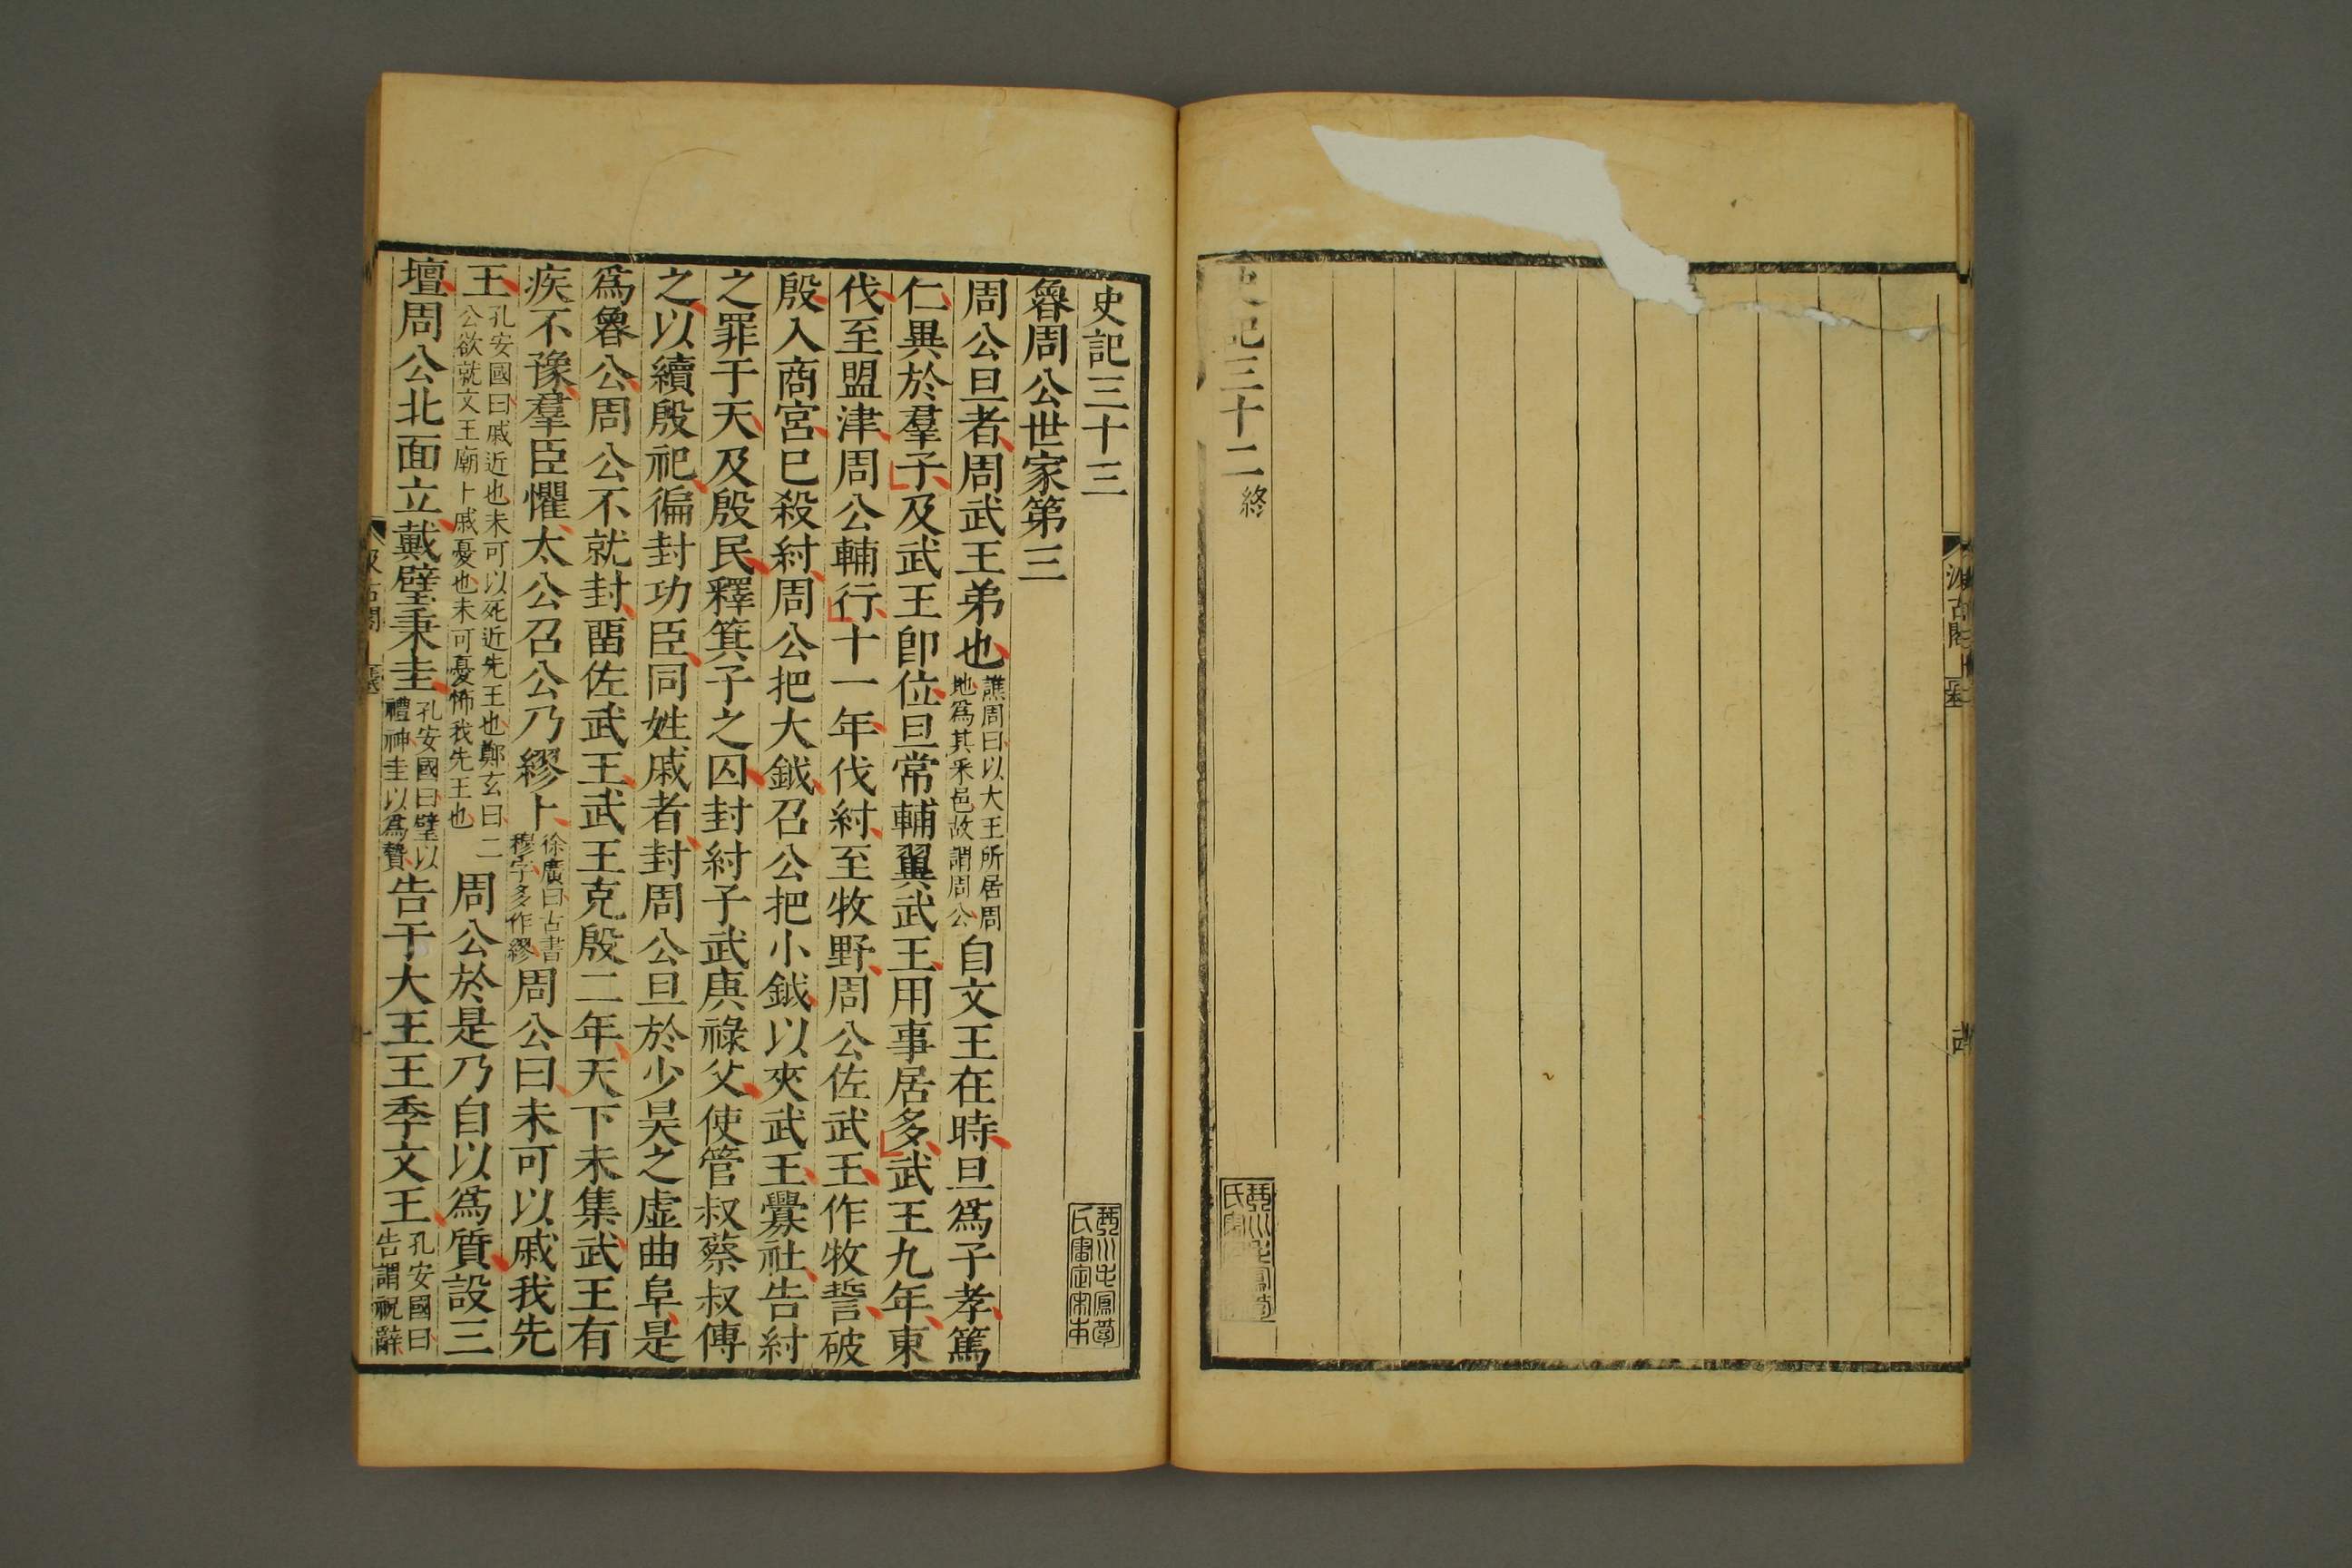 史記三十二終
史記三十三
魯周公世家第三
周公旦者周武王弟也譙周曰以大王所居周地爲其采邑故謂周公自文王在時旦爲子孝篤
仁異於羣子及武王卽位旦常輔翼武王用事居多武王九年東
伐至盟津周公輔行十一年伐紂至牧野周公佐武王作牧誓破
殷入商宮已殺紂周公把大鉞召公把小鉞以夾武王釁社告紂
之罪于天及殷民釋箕子之囚封紂子武庚祿父使管叔蔡叔傅
之以續殷祀徧封功臣同姓戚者封周公旦於少昊之虛曲阜是
爲魯公周公不就封畱佐武王武王克殷二年天下未集武王有
疾不豫羣臣懼太公召公乃繆卜徐廣曰古書穆字多作繆周公曰未可以戚我先
王孔安國曰戚近也未可以死近先王也鄭玄曰二公欲就文王廟卜戚憂也未可憂怖我先王也周公於是乃自以爲質設三
壇周公北面立戴璧秉圭孔安國曰璧以禮神圭以爲贄告于大王王季文王孔安國曰告謂祝辭
汲古閣